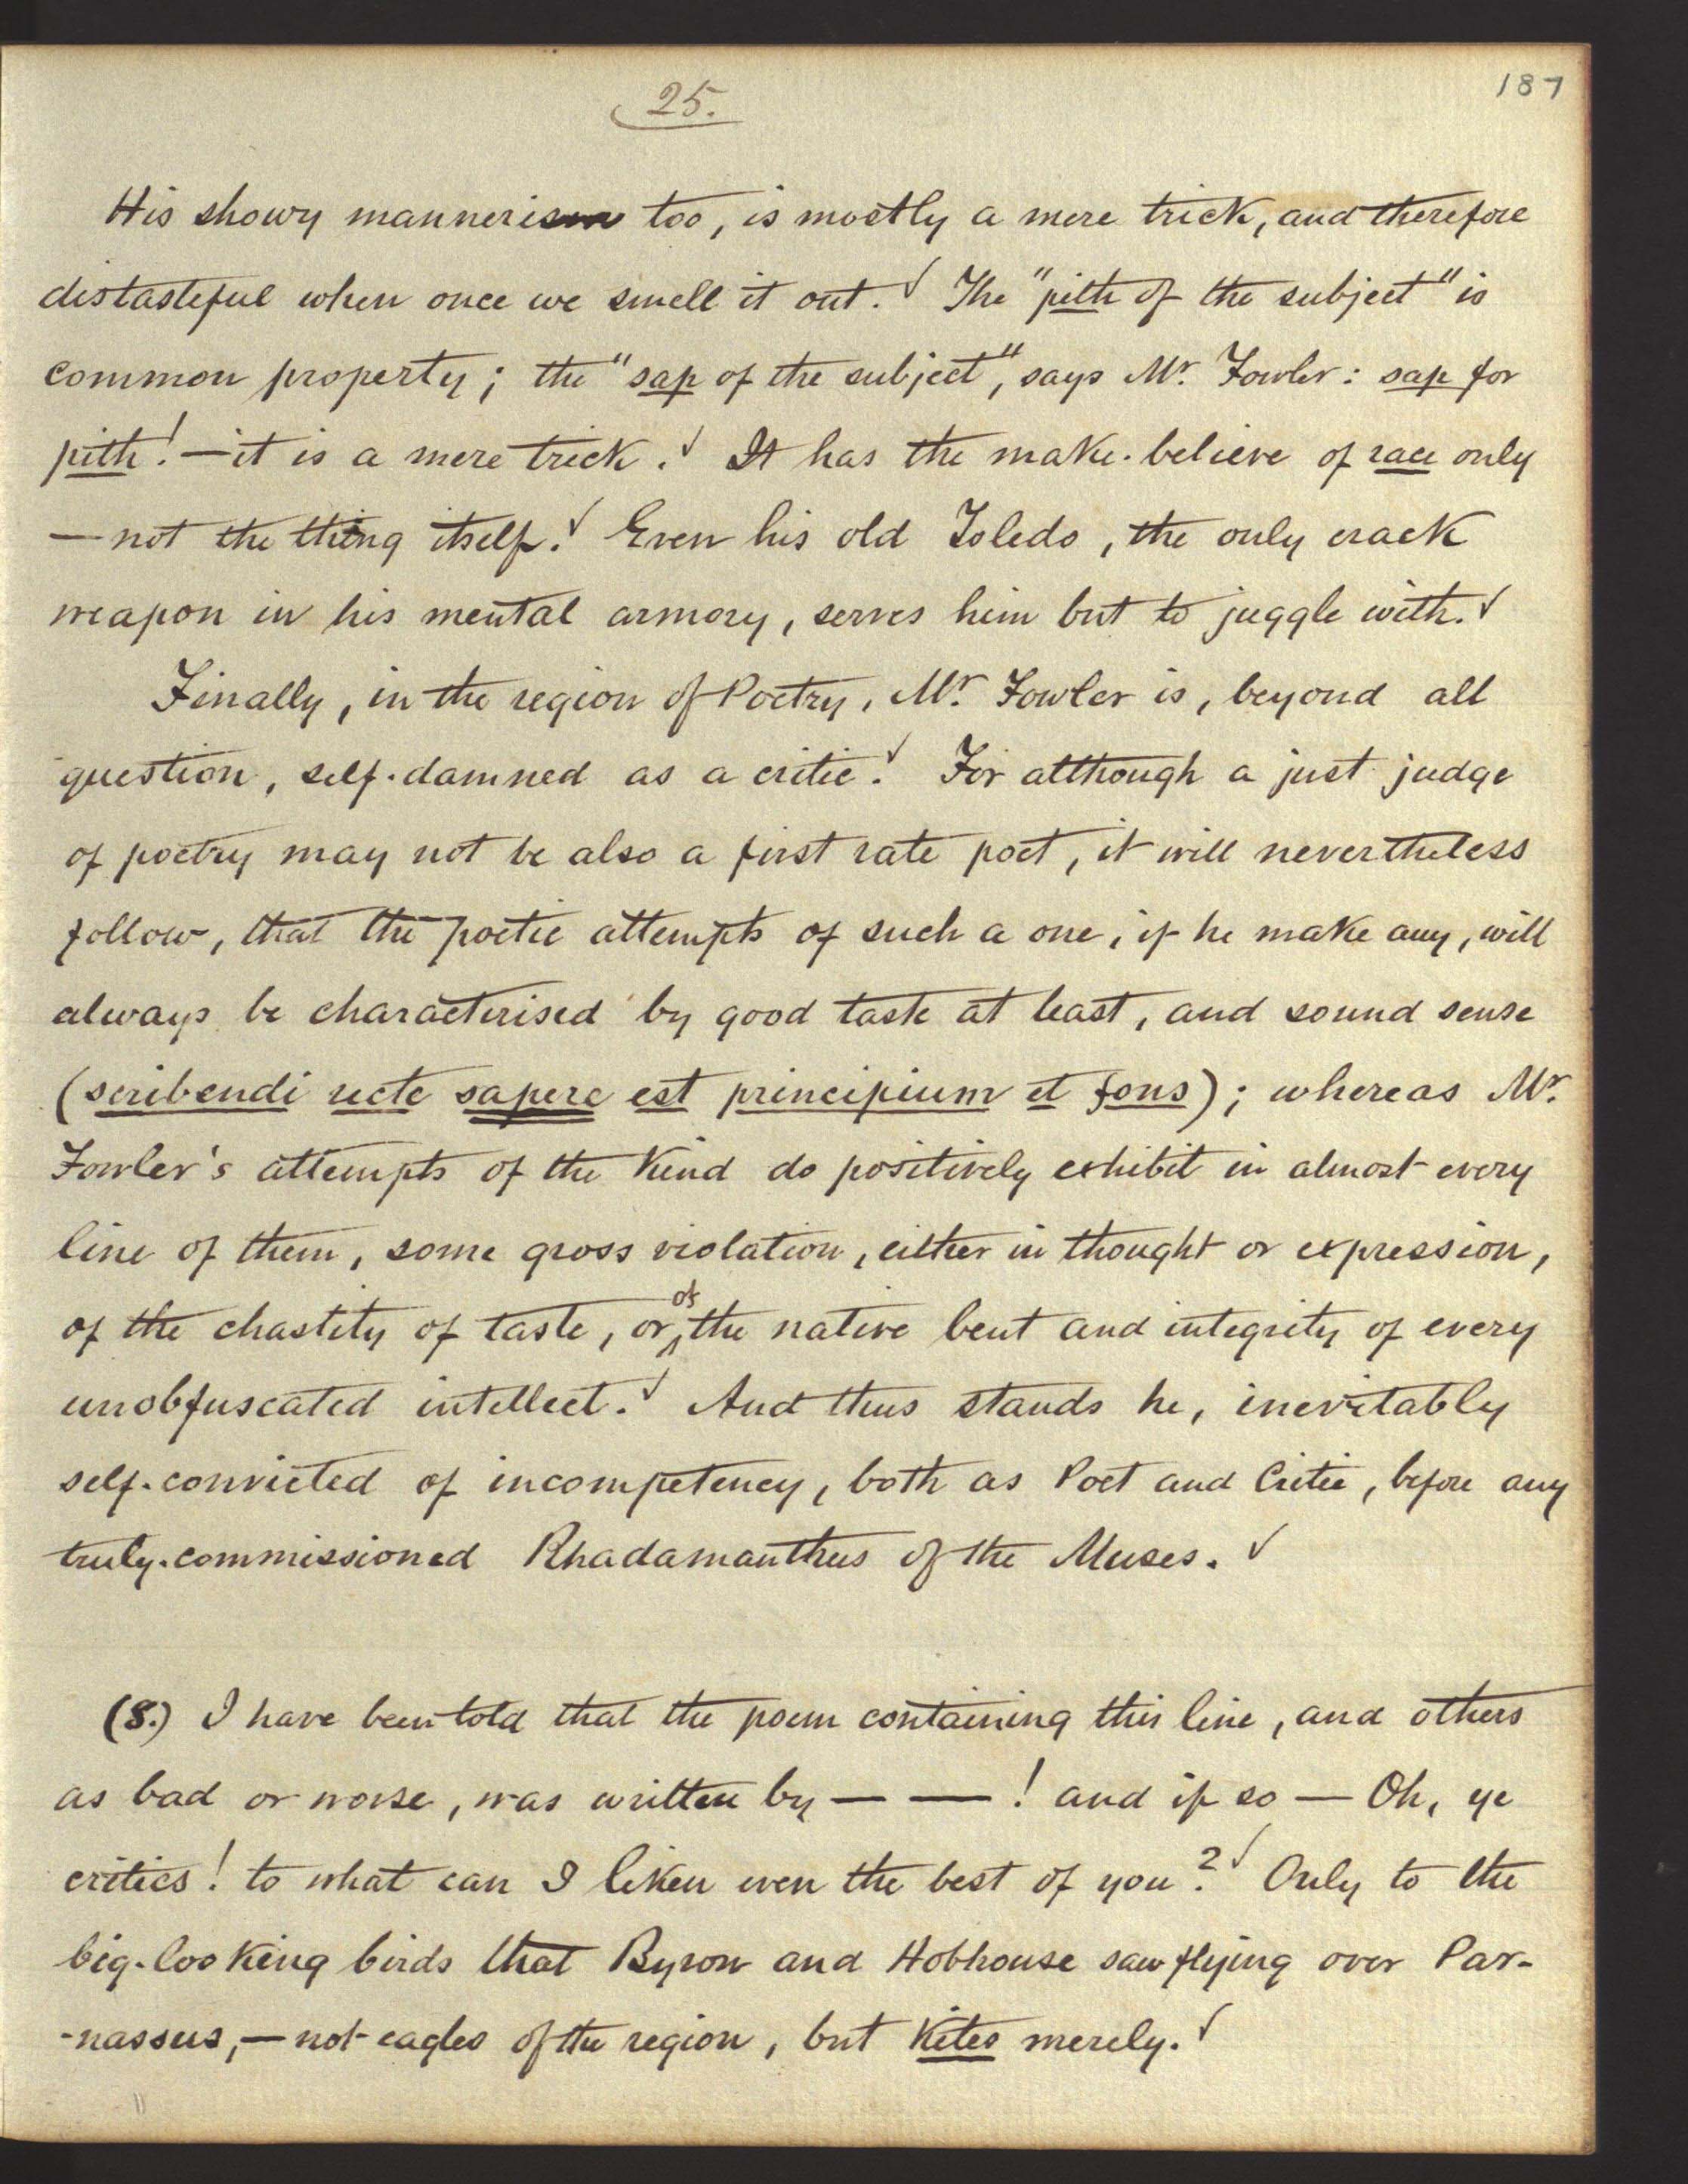 25.
187
His showy mannerism too, is mostly a mere trick, and therefore
distasteful when once we smell it out. The "pith of the subject" is
common property; the "sap of the subject", says Mr. Fowler: sap for
pith! — it is a mere trick. It has the make-believe of race only
— not the thing itself. Even his old Toledo, the only crack
weapon in his mental armory, serves him but to juggle with.
Finally, in the region of Poetry, Mr. Fowler is, beyond all
question, self-damned as a critic. For although a just judge
of poetry may not be also a first rate poet, it will nevertheless
follow, that the poetic attempts of such a one, if he make any, will
always be characterised by good taste at least, and sound sense
(scribendi recte sapere est principium et fons); whereas Mr.
Fowler's attempts of the kind do positively exhibit in almost every
line of them, some gross violation, either in thought or expression,
of the chastity of taste, or of the native bent and integrity of every
unobfuscated intellect. And thus stands he, inevitably
self-convicted of incompetency, both as Poet and Critic, before any
truly-commissioned Rhadamanthus of the Muses.
(8.) I have been told that the poem containing this line, and others
as bad or worse, was written by — — ! and if so — Oh, ye
critics! to what can I liken even the best of you? Only to the
big-looking birds that Byron and Hobhouse saw flying over Par-
-nassus, — not eagles of the region, but Kites merely.